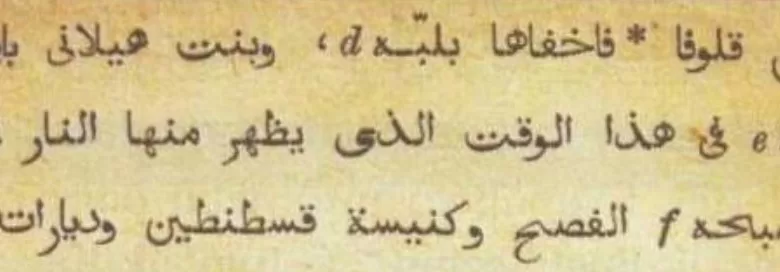 قلوفا * فاخفاها بلبّه d، وبنت هيلانى
e فى هذا الوقت الذى يظهر منها النار
f الفصح وكنيسة قسطنطين وديارات